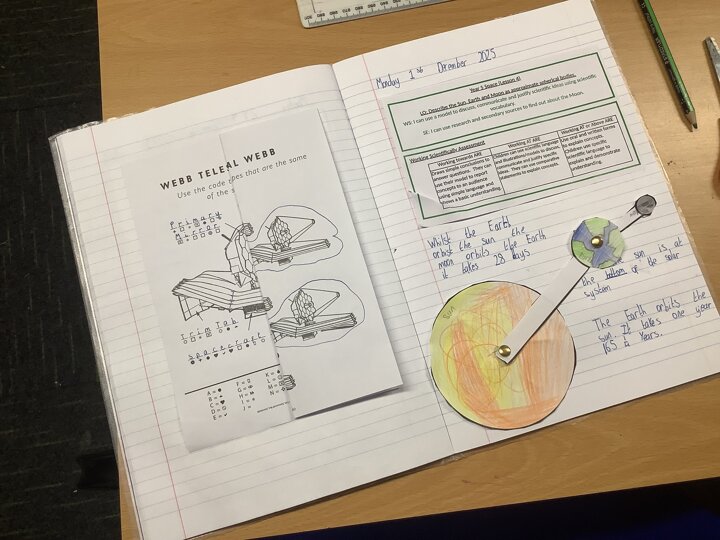 WEBB TELEAL WEBB
Use the code
pes that are the same
of the s
Primary
Mirror
Trim Tab
spacecraft
A =
B =
C =
D =
E =
F =
G =
H =
I =
J =
K =
L =
M =
N =
Monday 1st December 2025
Year 5 Space (Lesson 6)
LO: Describe the Sun, Earth and Moon as approximate spherical bodies.
WS: I can use a model to discuss, communicate and justify scientific ideas using scientific
vocabulary.
SE: I can use research and secondary sources to find out about the Moon.
Working Scientifically Assessment
Working towards ARE
Draws simple conclusions to
answer questions. They can
use their model to report
concepts to an audience
using simple language and
shows a basic understanding.
Working AT ARE
Children can use scientific language
and illustrations/models to discuss,
communicate and justify scientific
ideas. They can use comparative
statements to explain concepts.
Working AT or Above ARE
Use oral and written forms
to explain concepts.
Children use specific
scientific language to
explain and demonstrate
understanding.
Whilst the Earth
orbist the sun the
moon orbits the Earth
it takes 28 days
Sun
sun is at
the of the solar
system
The Earth orbits the
sun It takes one year
Years.